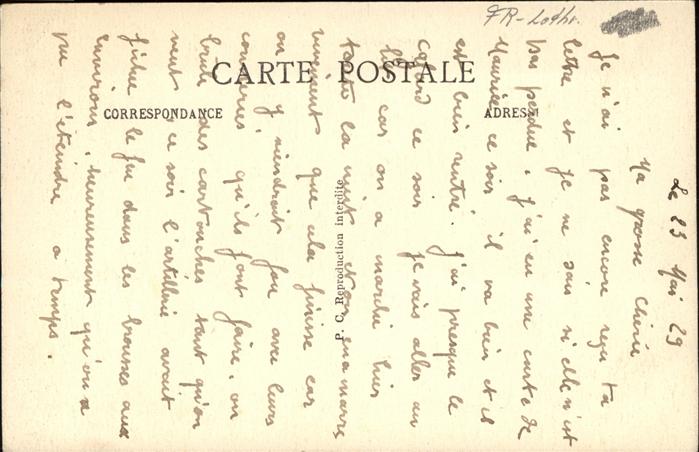 FR-Lothr.
CARTE POSTALE
CORRESPONDANCE
ADRESSE
P. C. Reproduction interdite
Le 23 Mai 29
Ma grosse Chérie
Je n'ai pas encore reçu ta
lettre et je ne sais si elle n'est
pas perdue. J'ai eu une carte de
Maurice ce soir il va bien et il
est bien rentré. J'ai presque le
cafard ce soir je vais aller au
lit car on a marché hier
toute la nuit et on en a marre
vivement que cela finisse car
on y viendrait fou avec leurs
conneries qu'ils font faire. on
brule des cartouches tant qu'on
veut ce soir l'artillerie avait
fichue le feu dans les brousses aux
environs, heureusement qu'on a
pu l'éteindre a temps.